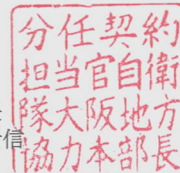 分任契約
担当官自衛
隊大阪地方
協力本部長
信